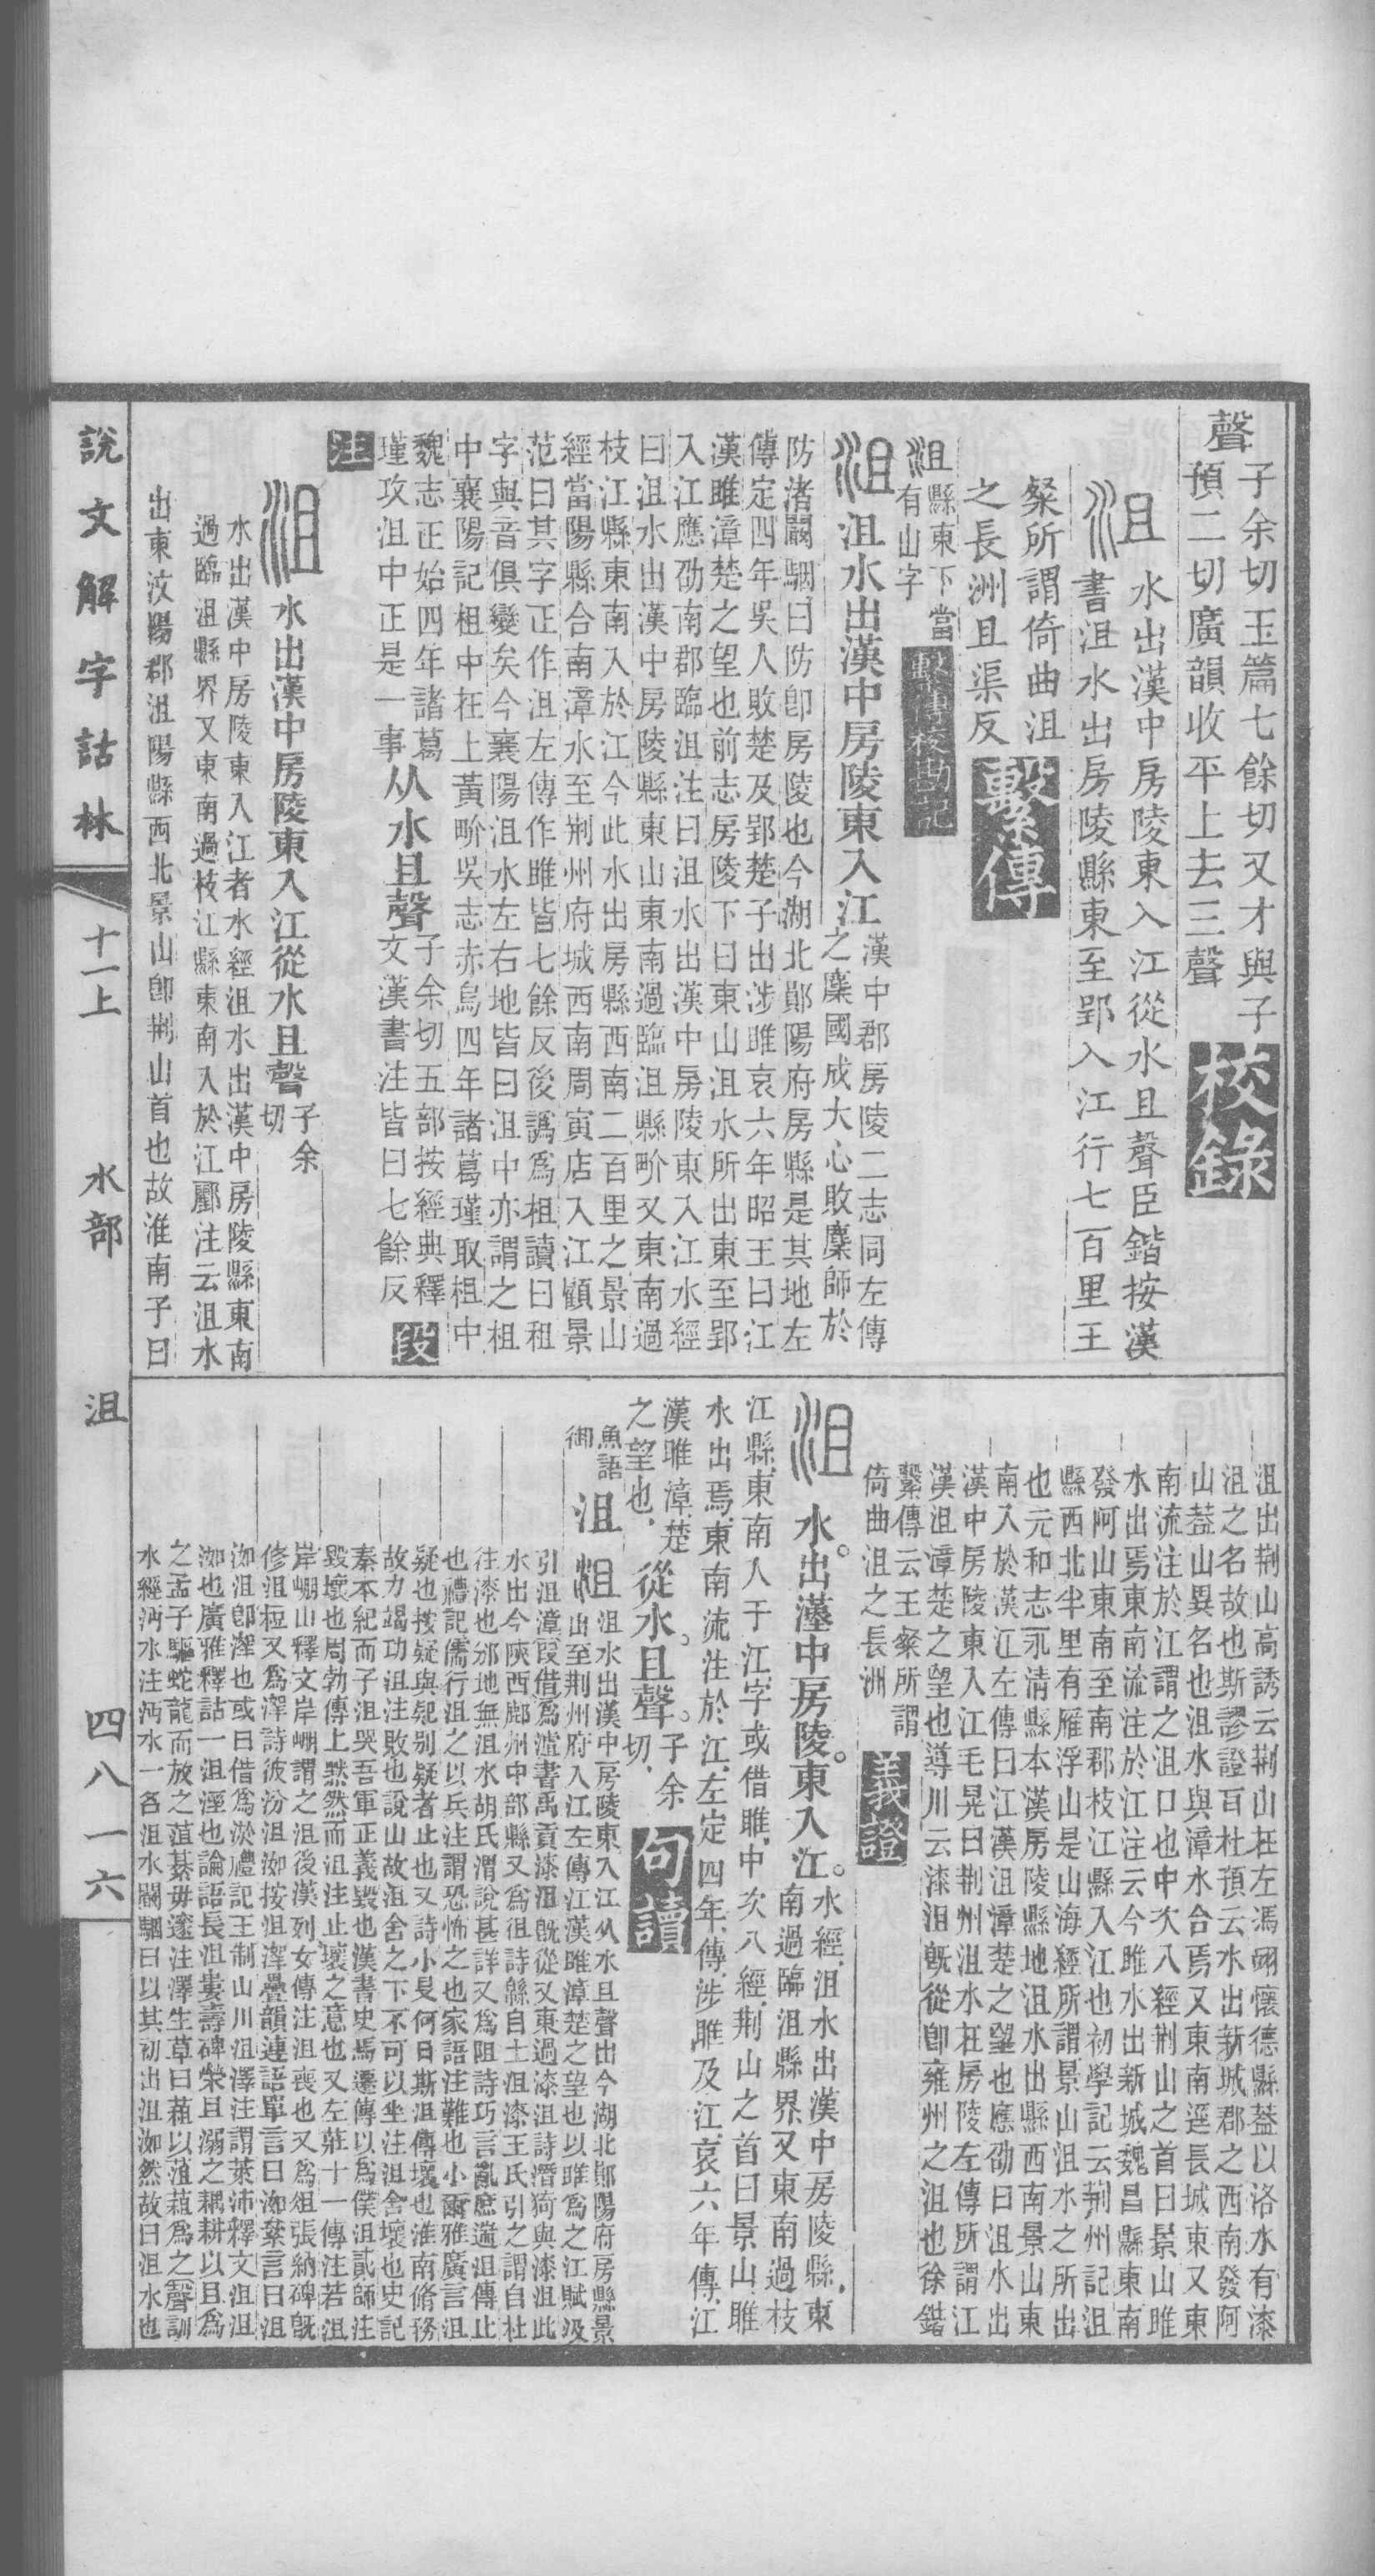 聲
子余切玉篇七餘切又才與子
預二切廣韻收平上去三聲
校錄
沮
水出漢中房陵東入江從水且聲臣鍇按漢
書沮水出房陵縣東至郢入江行七百里王
粲所謂倚曲沮
之長洲且渠反
繫傳
沮縣東下當
有山字
繫傳校勘記
沮
沮水出漢中房陵東入江
漢中郡房陵二志同左傳
之麇國成大心敗麇師於
防渚闞駰曰防卽房陵也今湖北鄖陽府房縣是其地左
傳定四年吳人敗楚及郢楚子出涉雎哀六年昭王曰江
漢雎漳楚之望也前志房陵下曰東山沮水所出東至郢
入江應劭南郡臨沮注曰沮水出漢中房陵東入江水經
曰沮水出漢中房陵縣東山東南過臨沮縣畍又東南過
枝江縣東南入於江今此水出房縣西南二百里之景山
經當陽縣合南漳水至荆州府城西南周寅店入江顧景
范曰其字正作沮左傳作雎皆七餘反後譌爲柤讀曰租
字與音俱變矣今襄陽沮水左右地皆曰沮中亦謂之柤
中襄陽記柤中在上黃畍吳志赤烏四年諸葛瑾取柤中
魏志正始四年諸葛
瑾攻沮中正是一事
从水且聲
子余切五部按經典釋
文漢書注皆曰七餘反
段
注
沮
水出漢中房陵東入江從水且聲
子余
切
水出漢中房陵東入江者水經沮水出漢中房陵縣東南
過臨沮縣界又東南過枝江縣東南入於江酈注云沮水
出東汶陽郡沮陽縣西北景山卽荆山首也故淮南子曰
沮出荆山高誘云荆山在左馮翊懷德縣葢以洛水有漆
沮之名故也斯謬證耳杜預云水出新城郡之西南發阿
山葢山異名也沮水與漳水合焉又東南逕長城東又東
南流注於江謂之沮口也中次八經荆山之首曰景山雎
水出焉東南流注於江注云今雎水出新城魏昌縣東南
發阿山東南至南郡枝江縣入江也初學記云荆州記沮
縣西北半里有雁浮山是山海經所謂景山沮水之所出
也元和志永清縣本漢房陵縣地沮水出縣西南景山東
南入於漢江左傳曰江漢沮漳楚之望也應劭曰沮水出
漢中房陵東入江毛晃曰荆州沮水在房陵左傳所謂江
漢沮漳楚之望也導川云漆沮旣從卽雍州之沮也徐鍇
繫傳云王粲所謂
倚曲沮之長洲
義證
沮
水出漢中房陵東入江
水經沮水出漢中房陵縣東
南過臨沮縣界又東南過枝
江縣東南入于江字或借雎中次八經荆山之首曰景山雎
水出焉東南流注於江左定四年傳涉雎及江哀六年傳江
漢雎漳楚
之望也
從水且聲
子余
切
句讀
魚語
御
沮
沮
沮水出漢中房陵東入江从水且聲出今湖北鄖陽府房縣景
出至荆州府入江左傳江漢雎漳楚之望也以雎爲之江賦汲
引沮漳叚借爲瀘書禹貢漆沮旣從又東過漆沮詩潛猗與漆沮此
水出今陝西鄜州中部縣又爲徂詩緜自土沮漆王氏引之謂自杜
往漆也邠地無沮水胡氏渭說甚詳又爲阻詩巧言亂庶遄沮傳止
也禮記儒行沮之以兵注謂恐怖之也家語注難也小爾雅廣言沮
疑也按疑與㠯别疑者止也又詩小旻何日斯沮傳壞也淮南脩務
故力竭功沮注敗也說山故沮舍之下不可以坐注沮舍壞也史記
秦本紀而子沮哭吾軍正義毀也漢書史馬遷傳以爲僕沮貳師注
毀壞也周勃傳上黙然而沮注止壞之意也又左莊十一傳注若沮
岸崩山釋文岸崩謂之沮後漢列女傳注沮喪也又爲俎張納碑旣
修沮桓又爲潪詩彼汾沮洳按沮潪疊韻連語單言曰洳絫言曰沮
洳沮卽潪也或曰借爲淤禮記王制山川沮澤注謂萊沛釋文沮沮
洳也廣雅釋詁一沮溼也論語長沮婁壽碑榮且溺之耦耕以且爲
之孟子驅蛇龍而放之菹綦毋邃注澤生草曰菹以菹葅爲之聲訓
水經沔水注沔水一名沮水闞駰曰以其初出沮洳然故曰沮水也
說文解字詁林
十一上
水部
沮
四八一六